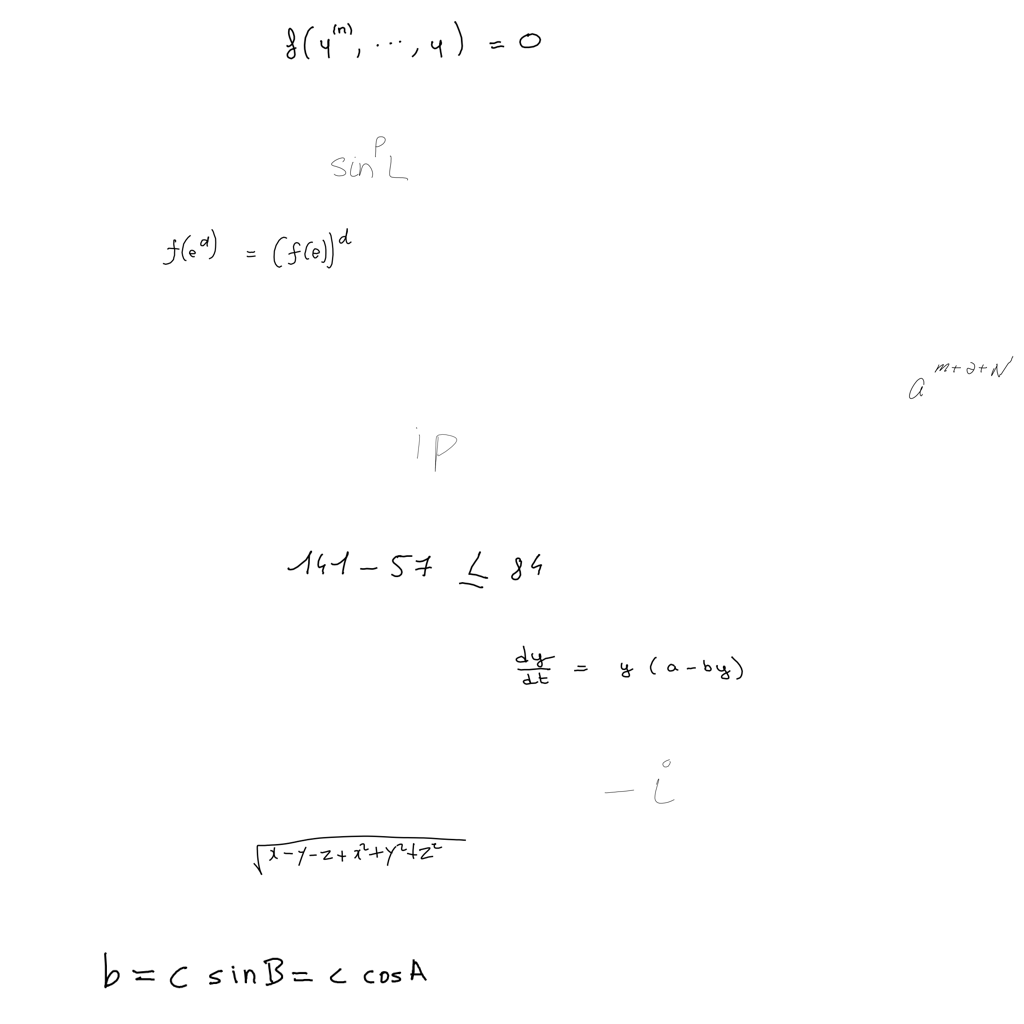 f(y^{(n)}, ..., y) = 0
sin^P L
f(e^d) = (f(e))^d
a^{m+2+N}
ip
141 - 57 ≤ 84
dy/dt = y (a - by)
- i
√(x - y - z + x² + y² + z²)
b = c sin B = c cos A